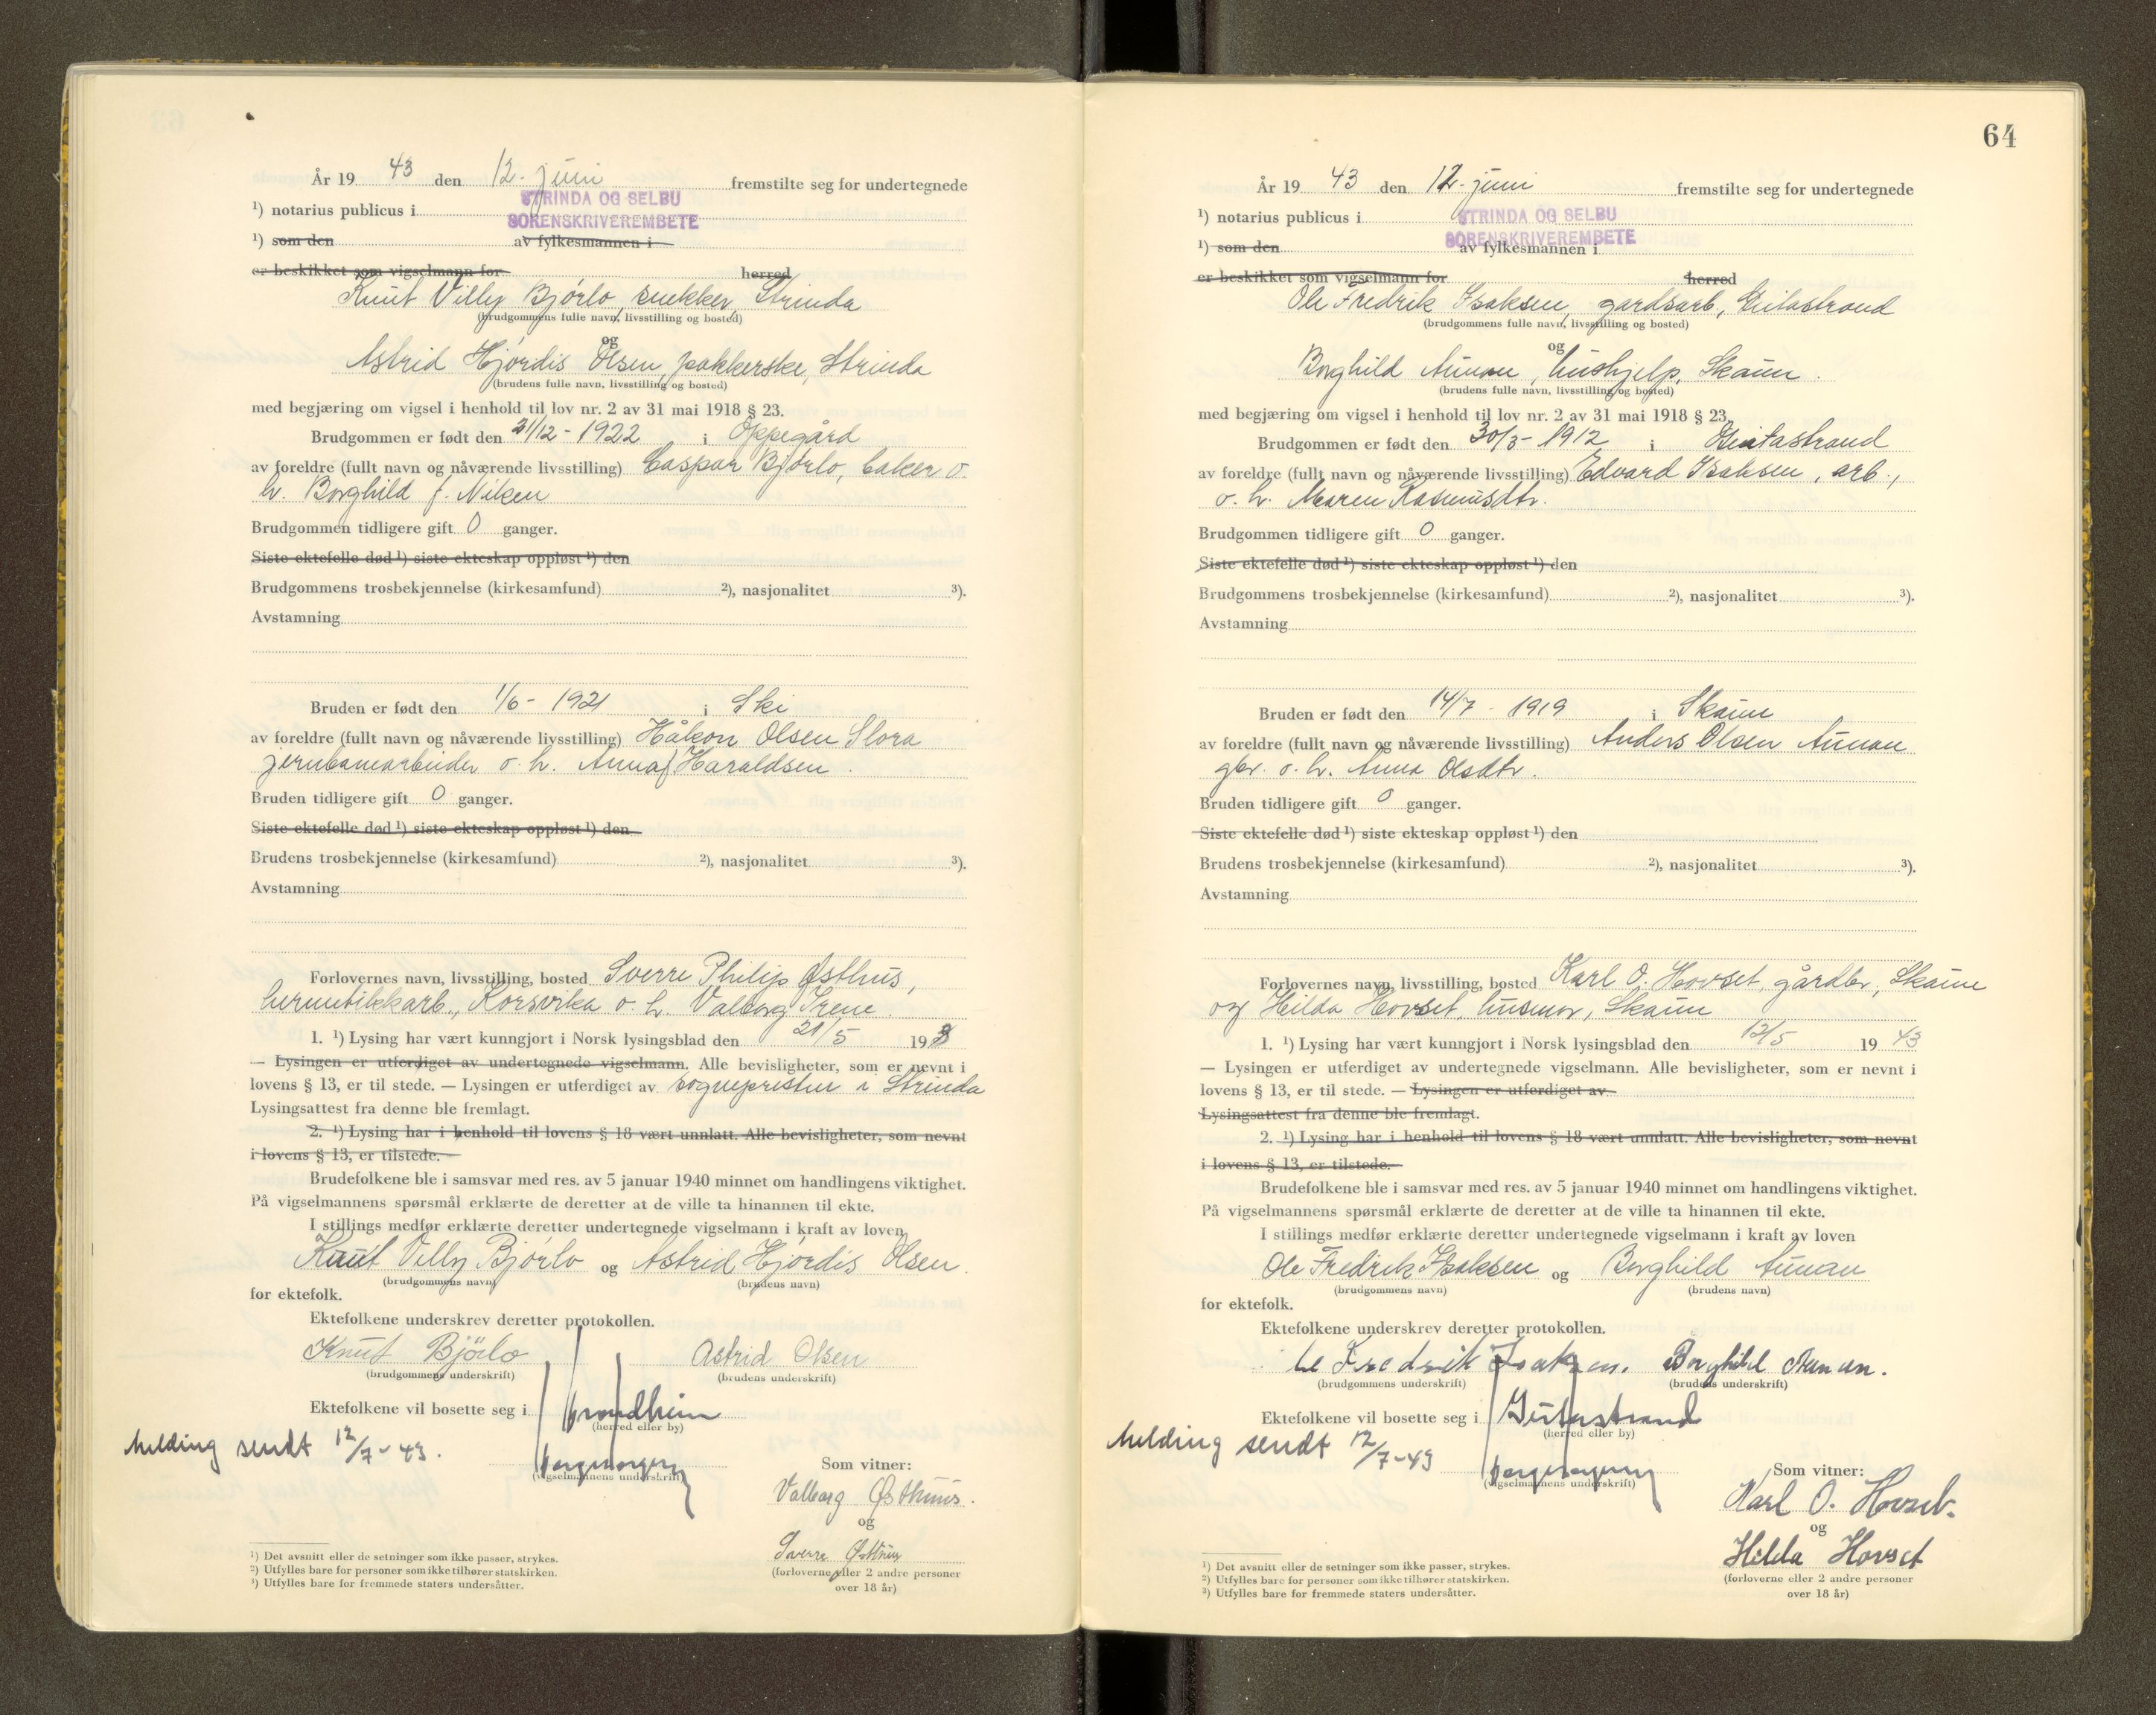 År 19 43 den 12. juni fremstilte seg for undertegnede
¹) notarius publicus i STRINDA OG SELBU
SORENSKRIVEREMBETE
¹) som den av fylkesmannen i
er beskikket som vigselmann for herred
Knut Villy Bjørlo, snekker, Strinda
(brudgommens fulle navn, livsstilling og bosted)
og
Astrid Hjørdis Olsen, pakkerske, Strinda
(brudens fulle navn, livsstilling og bosted)
med begjæring om vigsel i henhold til lov nr. 2 av 31 mai 1918 § 23.
Brudgommen er født den 31/12 - 1922 i Oppegård
av foreldre (fullt navn og nåværende livsstilling) Caspar Bjørlo, baker o.
h. Borghild f. Nilsen
Brudgommen tidligere gift 0 ganger.
Siste ektefelle død ¹) siste ekteskap oppløst ¹) den
Brudgommens trosbekjennelse (kirkesamfund) ²), nasjonalitet ³).
Avstamning
Bruden er født den 1/6 - 1921 i Ski
av foreldre (fullt navn og nåværende livsstilling) Håkon Olsen Slora
jernbanearbeider o. h. Anna f. Haraldsen.
Bruden tidligere gift 0 ganger.
Siste ektefelle død ¹) siste ekteskap oppløst ¹) den
Brudens trosbekjennelse (kirkesamfund) ²), nasjonalitet ³).
Avstamning
Forlovernes navn, livsstilling, bosted Sverre Philip Østhus,
hermetikkarb., Korsvika o. h. Valborg Irene.
1. ¹) Lysing har vært kunngjort i Norsk lysingsblad den 21/5 19 3
— Lysingen er utferdiget av undertegnede vigselmann. Alle bevisligheter, som er nevnt i
lovens § 13, er til stede. — Lysingen er utferdiget av sogneprester i Strinda
Lysingsattest fra denne ble fremlagt.
2. ¹) Lysing har i henhold til lovens § 18 vært unnlatt. Alle bevisligheter, som nevnt
i lovens § 13, er tilstede.
Brudefolkene ble i samsvar med res. av 5 januar 1940 minnet om handlingens viktighet.
På vigselmannens spørsmål erklærte de deretter at de ville ta hinannen til ekte.
I stillings medfør erklærte deretter undertegnede vigselmann i kraft av loven
Knut Villy Bjørlo og Astrid Hjørdis Olsen.
(brudgommens navn) (brudens navn)
for ektefolk.
Ektefolkene underskrev deretter protokollen.
Knut Bjørlo Astrid Olsen
(brudgommens underskrift) (brudens underskrift)
Ektefolkene vil bosette seg i Trondheim
(herred eller by)
Melding sendt 12/7-43.
(vigselmannens underskrift)
Som vitner:
Valborg Østhus.
og
Sverre Østhus
(forloverne eller 2 andre personer
over 18 år)
¹) Det avsnitt eller de setninger som ikke passer, strykes.
²) Utfylles bare for personer som ikke tilhører statskirken.
³) Utfylles bare for fremmede staters undersåtter.
64
År 19 43 den 12. juni fremstilte seg for undertegnede
¹) notarius publicus i STRINDA OG SELBU
SORENSKRIVEREMBETE
¹) som den av fylkesmannen i
er beskikket som vigselmann for herred
Ole Fredrik Isaksen, gardsarb, Geitastrand
(brudgommens fulle navn, livsstilling og bosted)
og
Borghild Aunan, hushjelp, Skaun.
(brudens fulle navn, livsstilling og bosted)
med begjæring om vigsel i henhold til lov nr. 2 av 31 mai 1918 § 23.
Brudgommen er født den 30/3 - 1912 i Geitastrand
av foreldre (fullt navn og nåværende livsstilling) Edvard Isaksen, arb.,
o. h. Maren Rasmusdtr.
Brudgommen tidligere gift 0 ganger.
Siste ektefelle død ¹) siste ekteskap oppløst ¹) den
Brudgommens trosbekjennelse (kirkesamfund) ²), nasjonalitet ³).
Avstamning
Bruden er født den 14/7 - 1919 i Skaun
av foreldre (fullt navn og nåværende livsstilling) Anders Olsen Aunan
gbr. o. h. Anna Olsdtr.
Bruden tidligere gift 0 ganger.
Siste ektefelle død ¹) siste ekteskap oppløst ¹) den
Brudens trosbekjennelse (kirkesamfund) ²), nasjonalitet ³).
Avstamning
Forlovernes navn, livsstilling, bosted Karl O. Hovset, gårdbr., Skaun
og Hilda Hovset, husmor, Skaun
1. ¹) Lysing har vært kunngjort i Norsk lysingsblad den 12/5 19 43
— Lysingen er utferdiget av undertegnede vigselmann. Alle bevisligheter, som er nevnt i
lovens § 13, er til stede. — Lysingen er utferdiget av
Lysingsattest fra denne ble fremlagt.
2. ¹) Lysing har i henhold til lovens § 18 vært unnlatt. Alle bevisligheter, som nevnt
i lovens § 13, er tilstede.
Brudefolkene ble i samsvar med res. av 5 januar 1940 minnet om handlingens viktighet.
På vigselmannens spørsmål erklærte de deretter at de ville ta hinannen til ekte.
I stillings medfør erklærte deretter undertegnede vigselmann i kraft av loven
Ole Fredrik Isaksen og Borghild Aunan
(brudgommens navn) (brudens navn)
for ektefolk.
Ektefolkene underskrev deretter protokollen.
Ole Fredrik Isaksen. Borghild Aunan.
(brudgommens underskrift) (brudens underskrift)
Ektefolkene vil bosette seg i Geitastrand
(herred eller by)
Melding sendt 12/7-43
(vigselmannens underskrift)
Som vitner:
Karl O. Hovset.
og
Hilda Hovset
(forloverne eller 2 andre personer
over 18 år)
¹) Det avsnitt eller de setninger som ikke passer, strykes.
²) Utfylles bare for personer som ikke tilhører statskirken.
³) Utfylles bare for fremmede staters undersåtter.